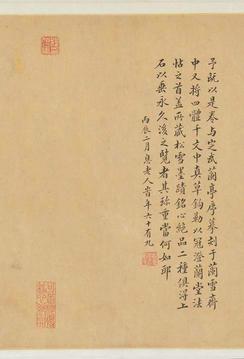 予既以是卷与定武蘭亭序摹刻于蘭雪齋
中又将四體千文中真草鈎勒以冠澄蘭堂法
帖之首盖所藏松雪墨蹟銘心絶品二種俱得上
石以垂永久後之覽者其珎重當何如邪
丙辰二月息老人岩年六十有九